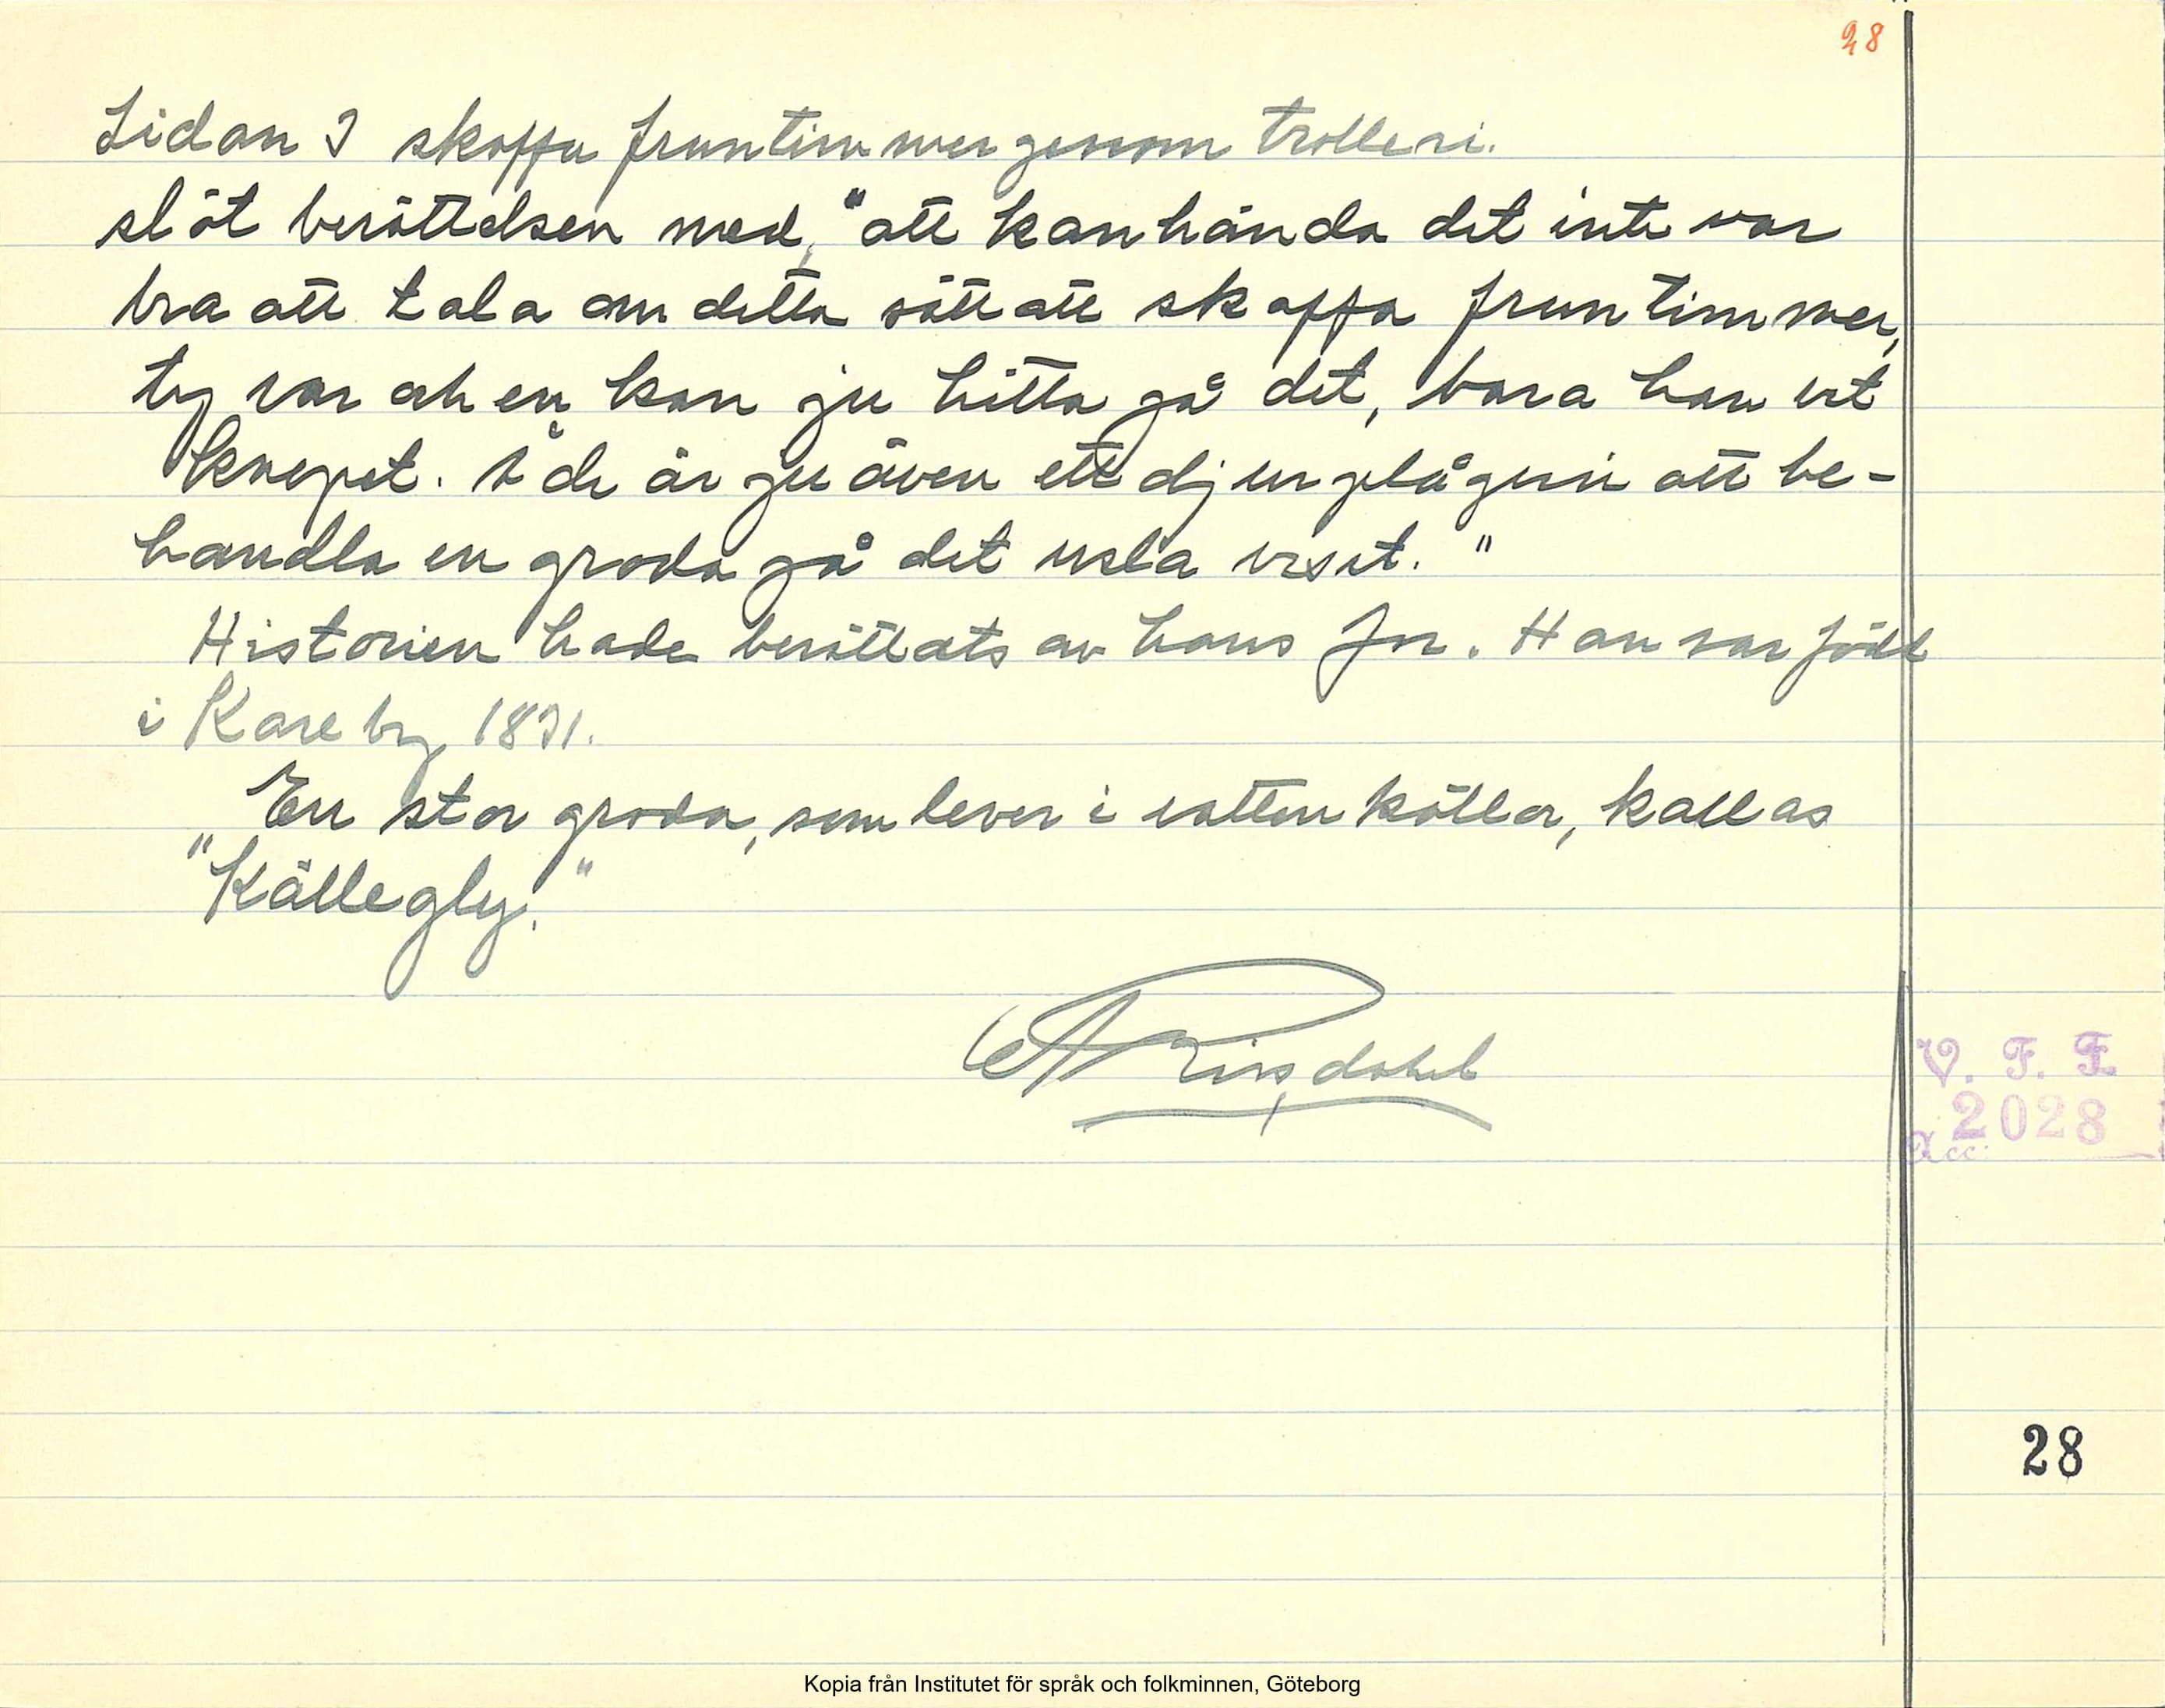 28
Sidan 3 skaffa fruntimmer genom trolleri.
slöt berättelsen med, "att kanhända det inte var
bra att tala om detta sätt att skaffa fruntimmer,
ty var och en kan ju hitta på det, bara han vet
knepet. å de är ju även ett djurplågeri att be-
handla en groda på det usla viset."
Historien hade berättats av hans far. Han var född
i Kareby 1831.
En stor groda, som lever i vattenkällor, kallas
"Källegly."
V. F. F.
2028
Acc.
28
Kopia från Institutet för språk och folkminnen, Göteborg